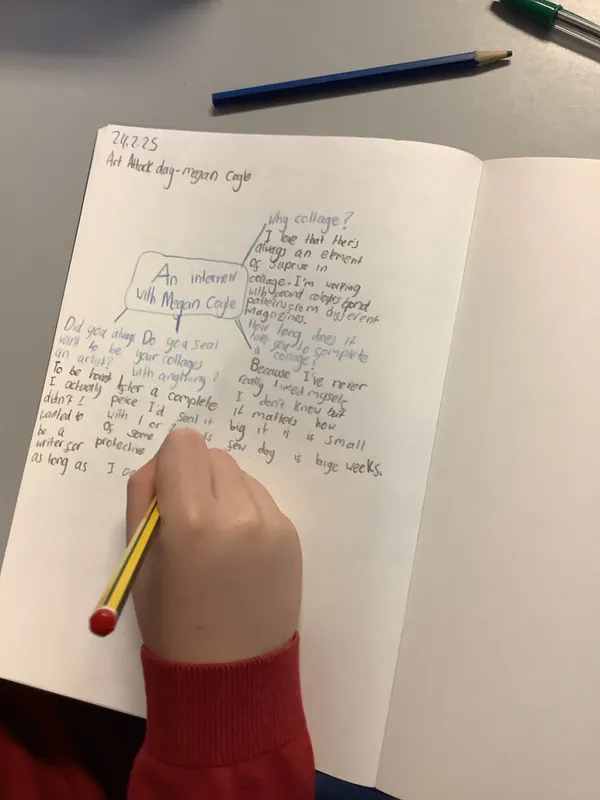 24.2.25
Art Attack day-megan Coyle
An interview
with Megan Coyle
Why collage?
I love that ther's
always an element
of suprise in
collage. I'm working
with
patterns from different
magazines.
How long does it
take you to complete
a collage?
Because I've never
really timed myself
I don't know but
it matters how
big it is is small
few day is large weeks.
Do you seal
your collages
with anything?
after a complete
peice I'd seal it
with 1 or
of some
protective
Did you always
want to be
an artist?
To be honest
I actually
didn't I
wanted to
be a
writer for
as long as I